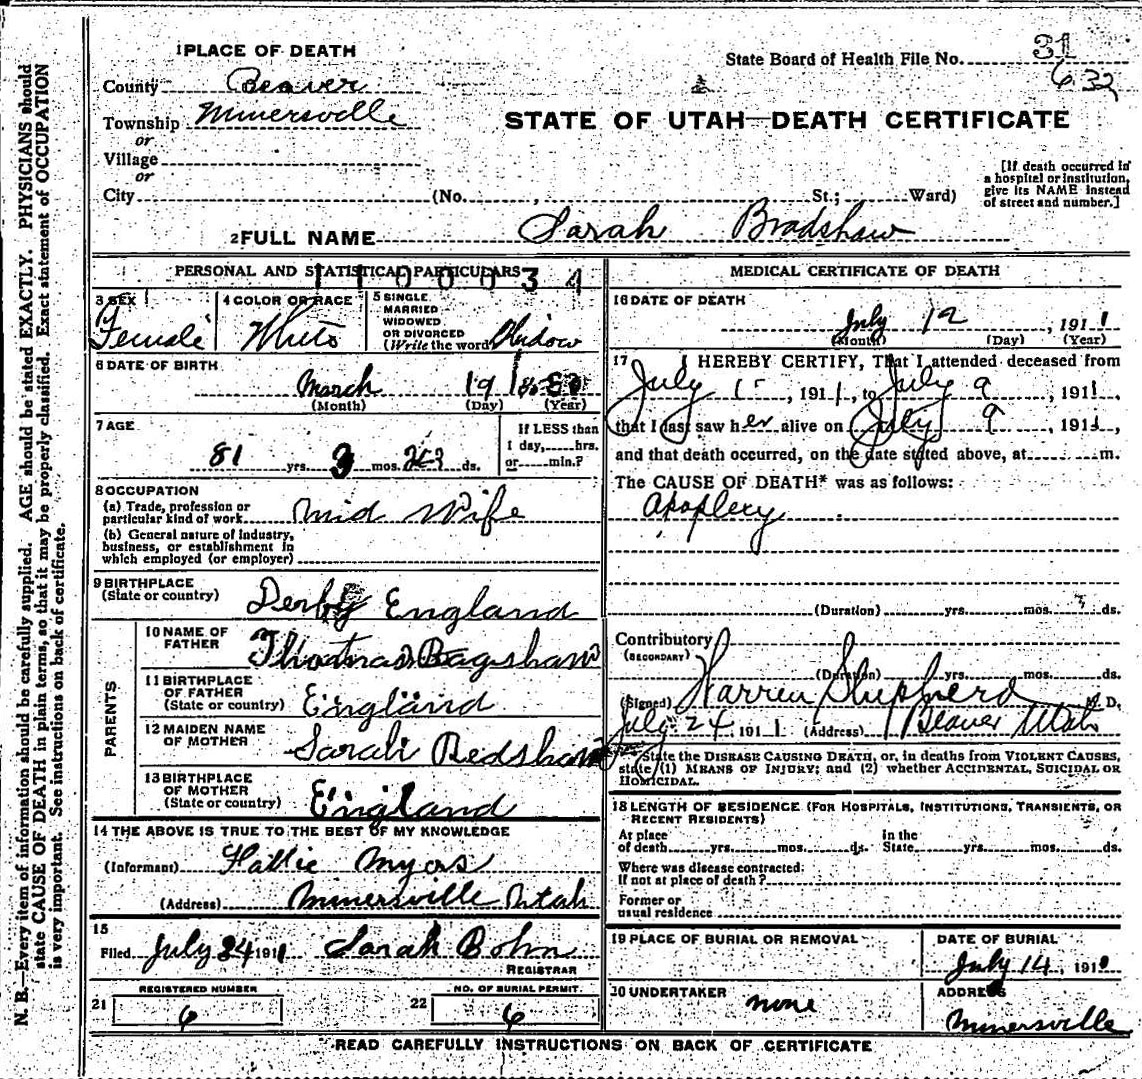 1 PLACE OF DEATH
County Beaver
Township Minersville
or
Village
or
City (No. , St.; Ward)
State Board of Health File No. 31
632
STATE OF UTAH—DEATH CERTIFICATE
[If death occurred in
a hospital or institution,
give its NAME instead
of street and number.]
2 FULL NAME Sarah Bradshaw
PERSONAL AND STATISTICAL PARTICULARS
1100034
3 SEX
Female
4 COLOR OR RACE
White
5 SINGLE
MARRIED
WIDOWED
OR DIVORCED
(Write the word) Widow
6 DATE OF BIRTH
March 19
(Month) (Day) (Year)
7 AGE
81 yrs. mos. ds.
If LESS than
1 day, hrs.
or min.?
8 OCCUPATION
(a) Trade, profession or
particular kind of work Mid Wife
(b) General nature of industry,
business, or establishment in
which employed (or employer)
9 BIRTHPLACE
(State or country) Derby England
PARENTS
10 NAME OF
FATHER Thomas Bagshaw
11 BIRTHPLACE
OF FATHER
(State or country) England
12 MAIDEN NAME
OF MOTHER Sarah Redshaw
13 BIRTHPLACE
OF MOTHER
(State or country) England
14 THE ABOVE IS TRUE TO THE BEST OF MY KNOWLEDGE
(Informant) Hallie Myers
(Address) Minersville Utah
15
Filed July 24 1911 Sarah Bohn
REGISTRAR
REGISTERED NUMBER
21 6
NO. OF BURIAL PERMIT.
22 6
MEDICAL CERTIFICATE OF DEATH
16 DATE OF DEATH
July 12, 1911
(Month) (Day) (Year)
17 I HEREBY CERTIFY, That I attended deceased from
July 1, 1911, to July 9, 1911,
that I last saw her alive on July 9, 1911,
and that death occurred, on the date stated above, at m.
The CAUSE OF DEATH* was as follows:
Apoplexy
(Duration) yrs. mos. ds.
Contributory
(SECONDARY)
(Duration) yrs. mos. ds.
(Signed) Warren Shepherd M. D.
July 24, 1911 (Address) Beaver Utah
*State the DISEASE CAUSING DEATH, or, in deaths from VIOLENT CAUSES,
state (1) MEANS OF INJURY; and (2) whether ACCIDENTAL, SUICIDAL OR
HOMICIDAL.
18 LENGTH OF RESIDENCE (FOR HOSPITALS, INSTITUTIONS, TRANSIENTS, OR
RECENT RESIDENTS)
At place
of death yrs. mos. ds.
in the
State yrs. mos. ds.
Where was disease contracted,
If not at place of death?
Former or
usual residence
19 PLACE OF BURIAL OR REMOVAL
DATE OF BURIAL
July 14, 191
20 UNDERTAKER none
ADDRESS
Minersville
READ CAREFULLY INSTRUCTIONS ON BACK OF CERTIFICATE
N. B.—Every item of information should be carefully supplied. AGE should be stated EXACTLY. PHYSICIANS should
state CAUSE OF DEATH in plain terms, so that it may be properly classified. Exact statement of OCCUPATION
is very important. See instructions on back of certificate.